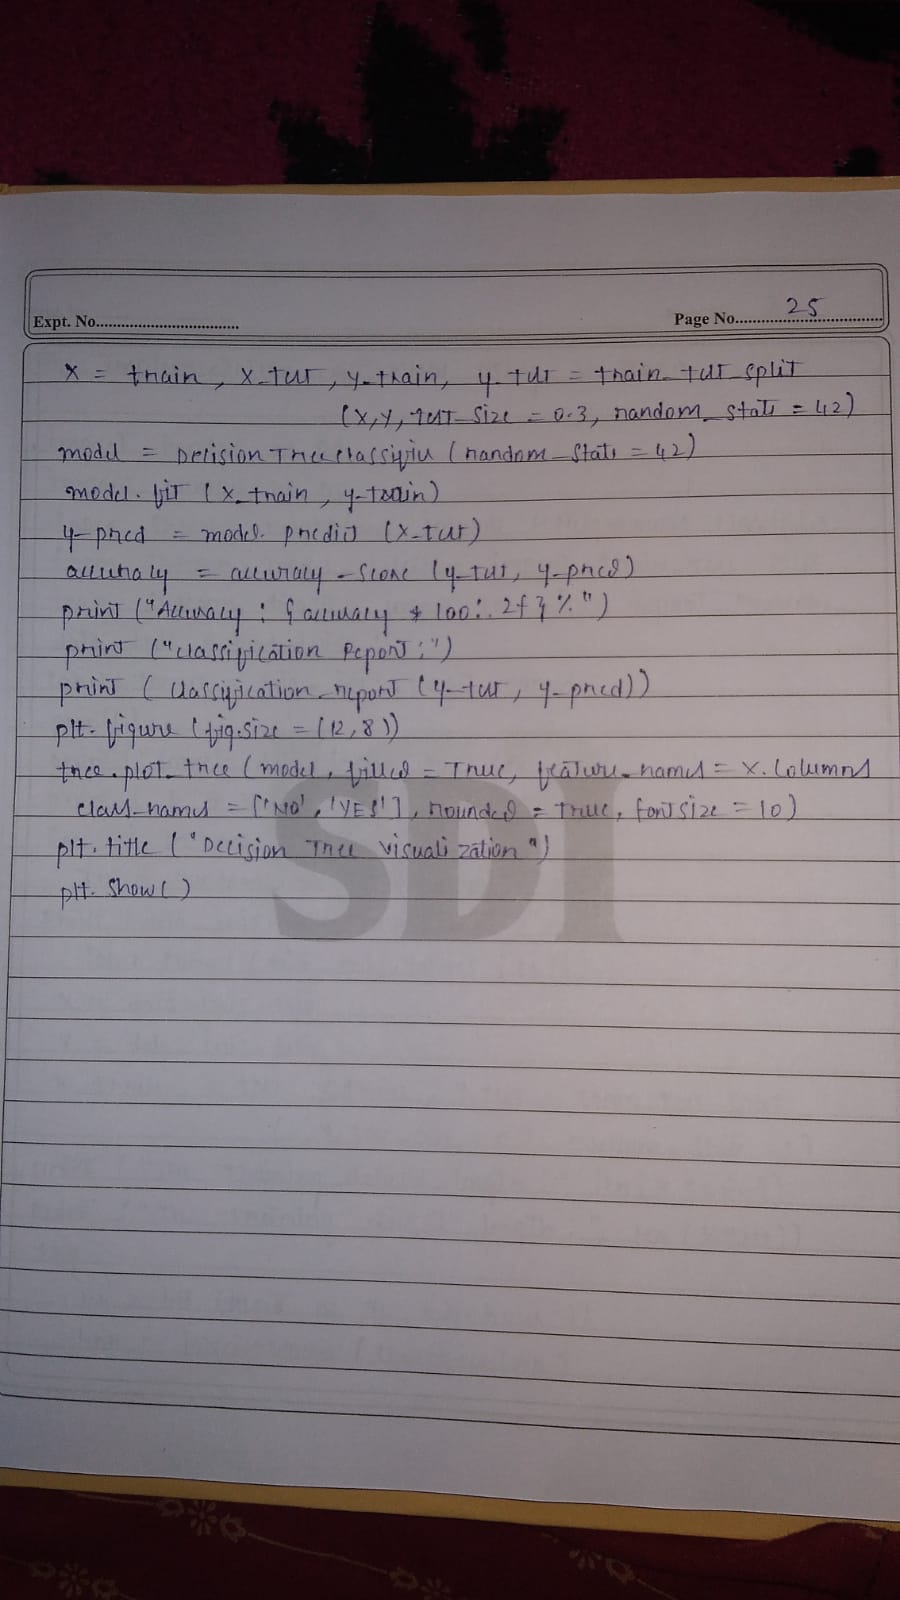 Expt. No.
Page No. 25
X = train, X_test, y_train, y_test = train_test_split
(X, y, test_size = 0.3, random_state = 42)
model = DecisionTreeClassifier (random_state = 42)
model.fit (X_train, y_train)
y_pred = model.predict (X_test)
accuracy = accuracy_score (y_test, y_pred)
print ("Accuracy : {accuracy * 100:.2f}%")
print ("Classification Report:")
print (classification_report (y_test, y_pred))
plt.figure (fig.size = (12,8))
tree.plot_tree (model, filled = True, feature_names = X.columns
class_names = ['NO', 'YES'], rounded = True, fontsize = 10)
plt.title ("Decision Tree visualization")
plt.show()
SDI